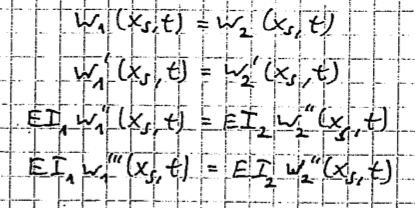 w₁(xₛ,t) = w₂(xₛ,t)
w₁'(xₛ,t) = w₂'(xₛ,t)
EI₁ w₁''(xₛ,t) = EI₂ w₂''(xₛ,t)
EI₁ w₁'''(xₛ,t) = EI₂ w₂''(xₛ,t)